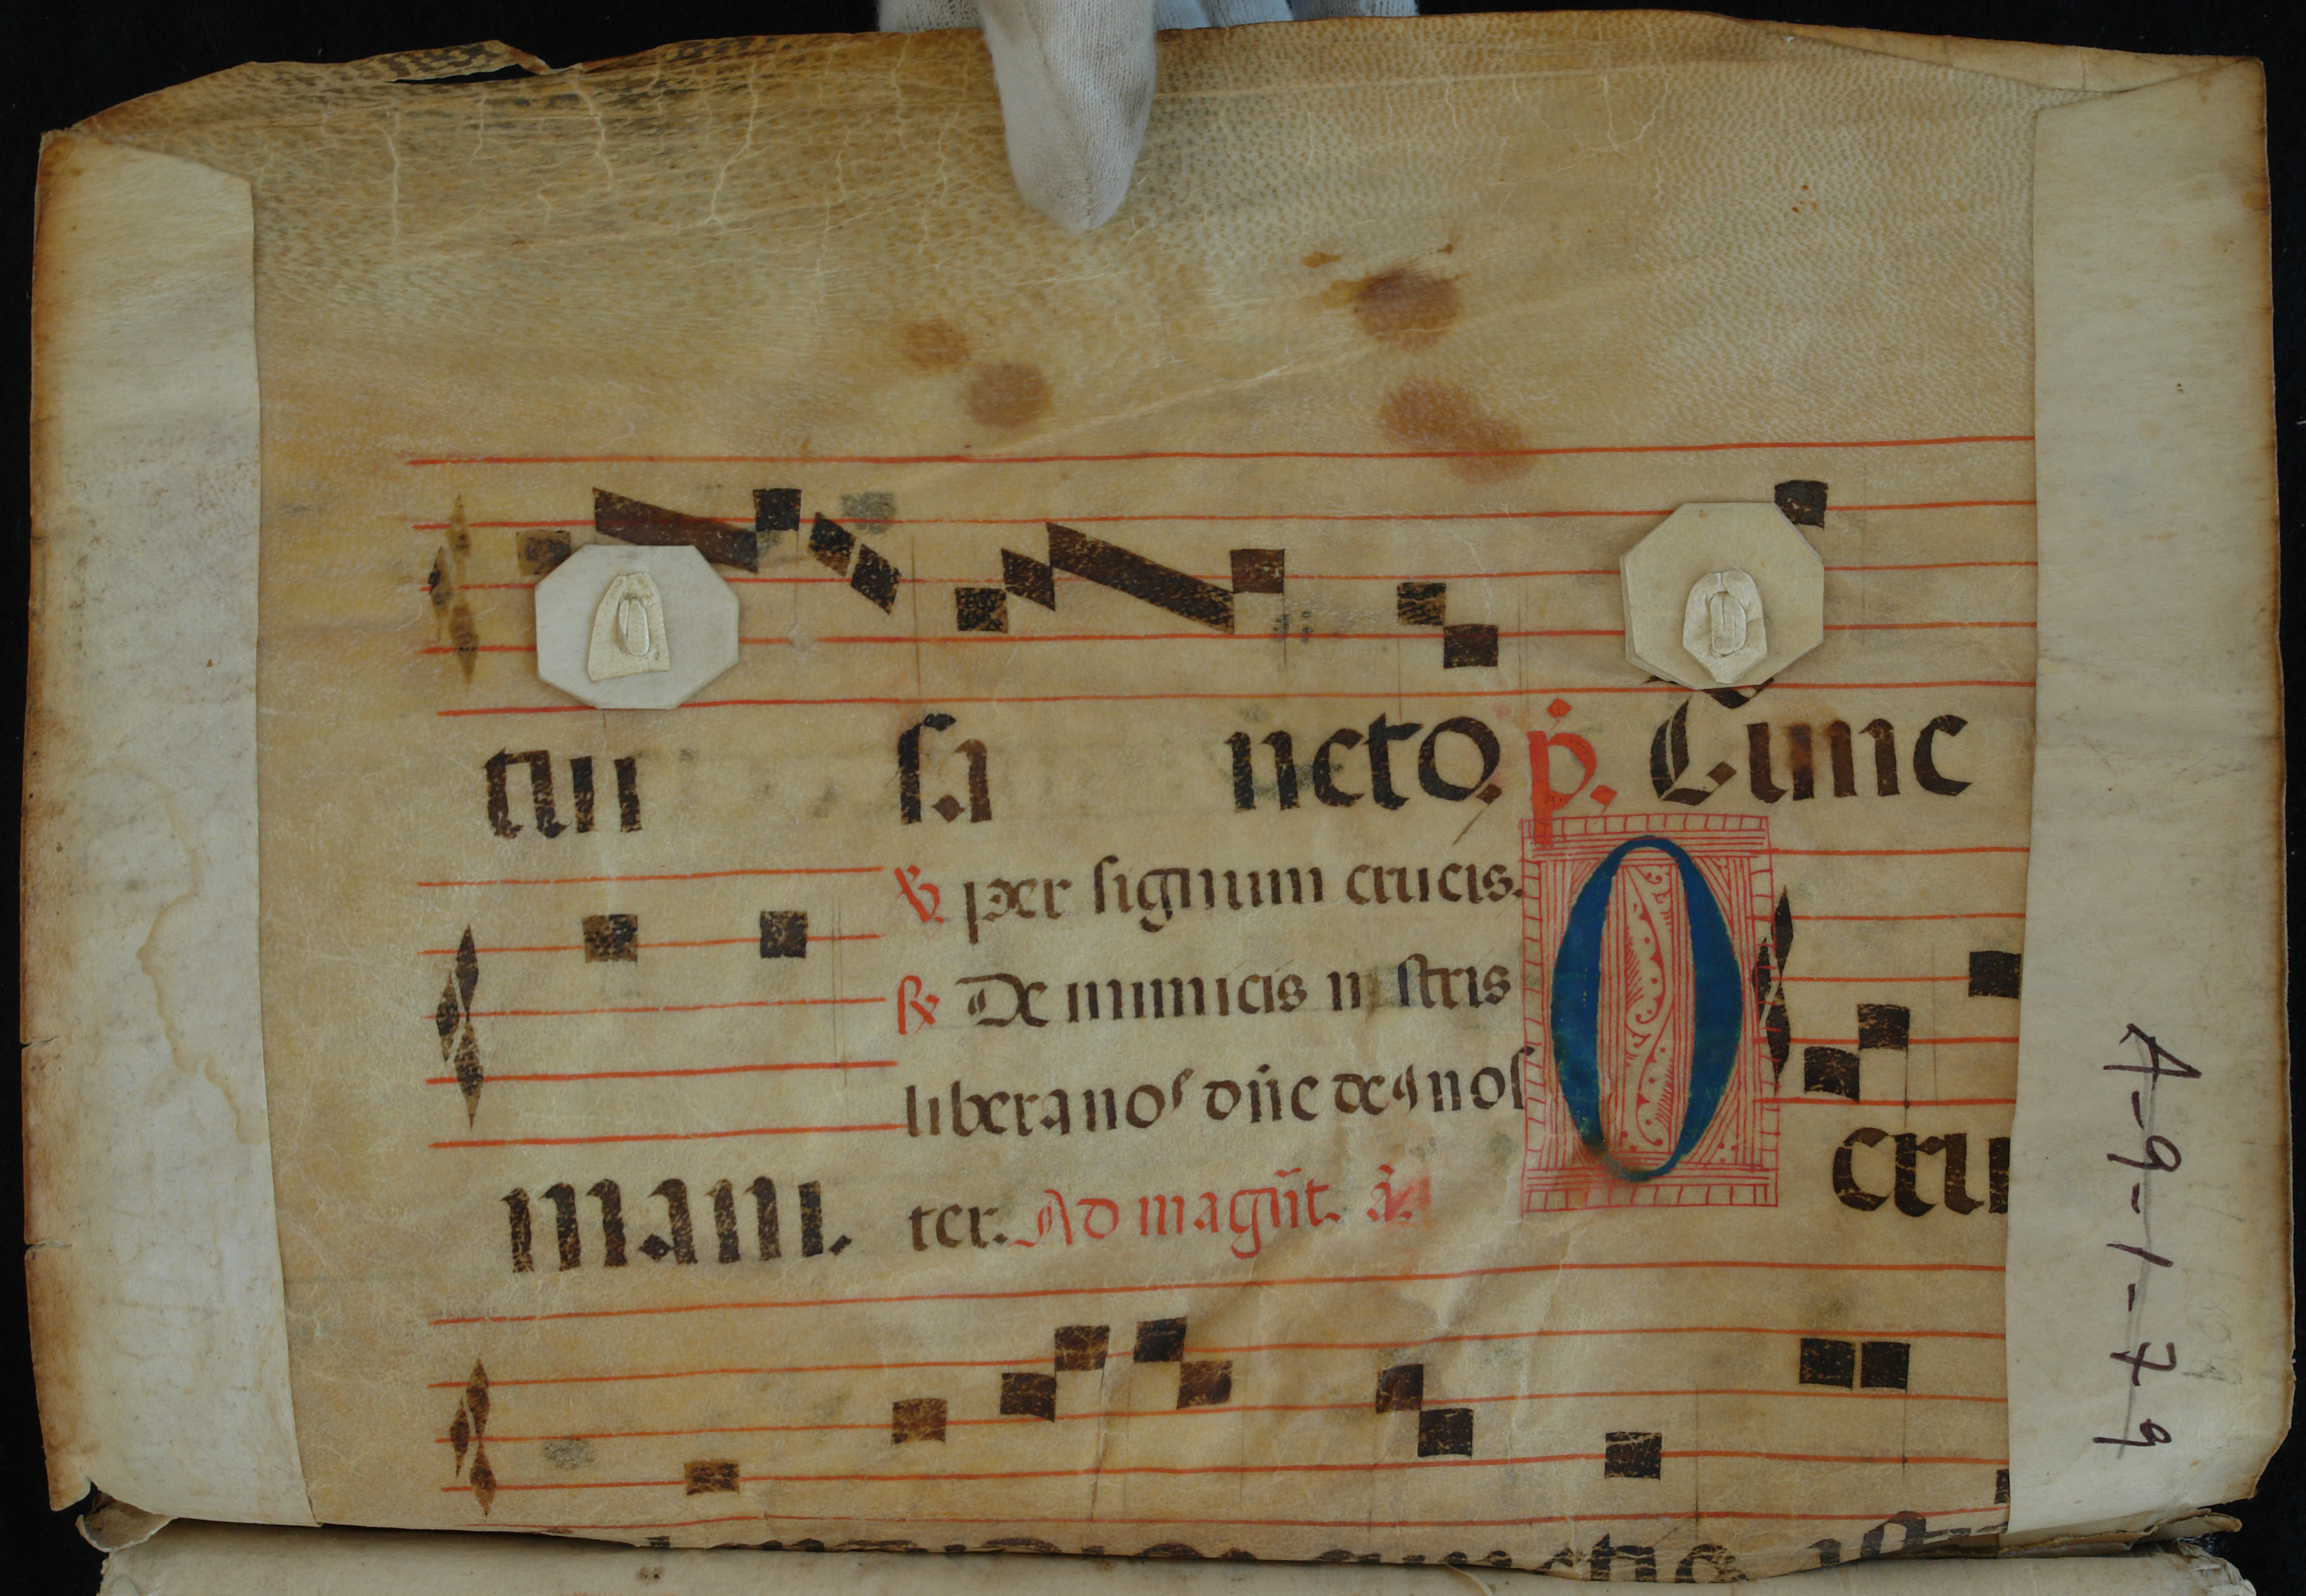 tui sancto. p̄. Tunc
℣. per signum crucis.
℟ De inimicis nostris
libera nos dn̄e deꝰ nos
ter. Ad magn̄t. a̅.
mam.
O cru
A-9-1-79